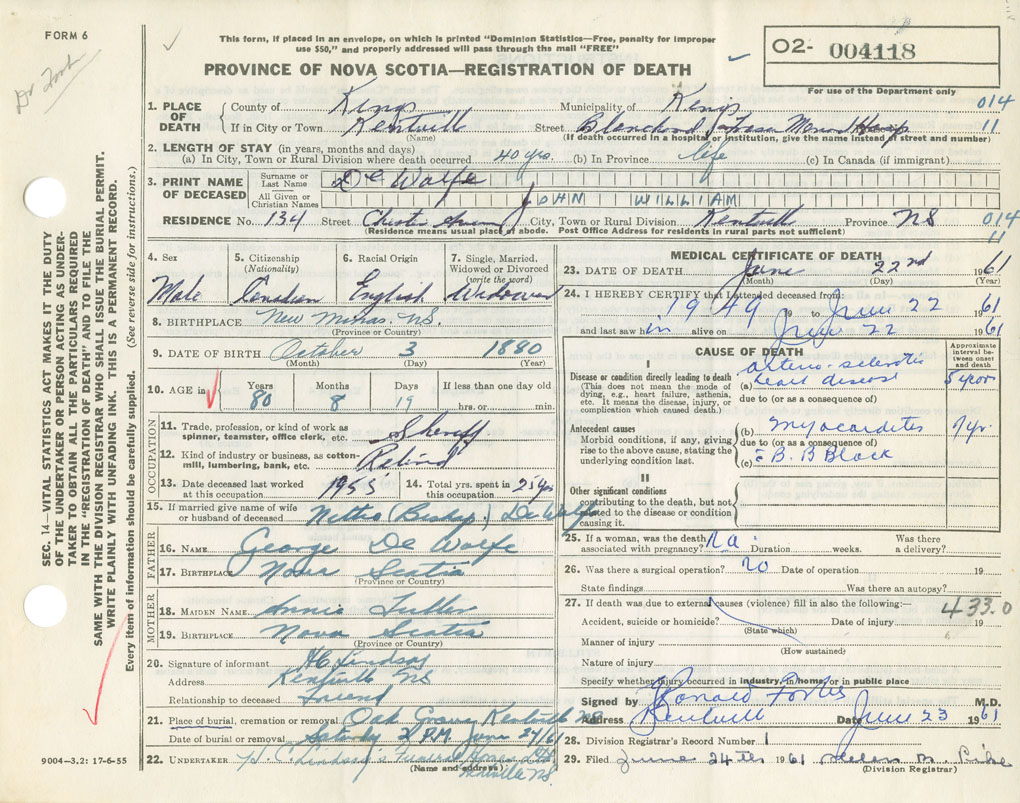 FORM 6
Dr Forbes
This form, if placed in an envelope, on which is printed "Dominion Statistics—Free, penalty for improper
use $50," and properly addressed will pass through the mail "FREE"
PROVINCE OF NOVA SCOTIA—REGISTRATION OF DEATH
O2- 004118
For use of the Department only
1. PLACE OF DEATH County of Kings Municipality of Kings 014
If in City or Town Kentville Street Blanchard Fraser Memorial Hosp 11
(Name) (If death occurred in a hospital or institution, give the name instead of street and number)
2. LENGTH OF STAY (in years, months and days)
(a) In City, Town or Rural Division where death occurred 40 yrs. (b) In Province life (c) In Canada (if immigrant)
3. PRINT NAME OF DECEASED Surname or Last Name De Wolfe
All Given or Christian Names JOHN WILLIAM
RESIDENCE No. 134 Street Chester Avenue City, Town or Rural Division Kentville Province NS 014
(Residence means usual place of abode. Post Office Address for residents in rural parts not sufficient) 11
4. Sex 5. Citizenship (Nationality) 6. Racial Origin 7. Single, Married, Widowed or Divorced (write the word)
Male Canadian English Widower
8. BIRTHPLACE New Minas, NS.
(Province or Country)
9. DATE OF BIRTH October 3 1880
(Month) (Day) (Year)
10. AGE in Years Months Days If less than one day old
80 8 19 hrs. or min.
OCCUPATION
11. Trade, profession, or kind of work as spinner, teamster, office clerk, etc. Sheriff
12. Kind of industry or business, as cotton-mill, lumbering, bank, etc. Retired
13. Date deceased last worked at this occupation 1955 14. Total yrs. spent in this occupation 25 yrs
15. If married give name of wife or husband of deceased Nettie (Bishop) De Wolfe
FATHER
16. NAME George De Wolfe
17. BIRTHPLACE Nova Scotia
(Province or Country)
MOTHER
18. MAIDEN NAME Annie Fuller
19. BIRTHPLACE Nova Scotia
(Province or Country)
20. Signature of informant HC Lindsay
Address Kentville NS
Relationship to deceased Friend
21. Place of burial, cremation or removal Oak Grove Kentville NS
Date of burial or removal Saturday 2 P.M. June 24/61
22. UNDERTAKER H. C. Lindsay's Funeral Home Ltd
(Name and address) Kentville NS
MEDICAL CERTIFICATE OF DEATH
23. DATE OF DEATH June 22nd 1961
(Month) (Day) (Year)
24. I HEREBY CERTIFY that I attended deceased from:
1949 19 to June 22 1961
and last saw him alive on June 22 1961
CAUSE OF DEATH
Approximate interval between onset and death
I
Disease or condition directly leading to death
(This does not mean the mode of dying, e.g., heart failure, asthenia, etc. It means the disease, injury, or complication which caused death.)
(a) arterio-sclerotic heart disease 5 years
due to (or as a consequence of)
Antecedent causes
Morbid conditions, if any, giving rise to the above cause, stating the underlying condition last.
(b) myocarditis 7 yr.
due to (or as a consequence of)
(c) B. B Block
II
Other significant conditions
contributing to the death, but not related to the disease or condition causing it.
25. If a woman, was the death associated with pregnancy? na Duration weeks. Was there a delivery?
26. Was there a surgical operation? no Date of operation 19
State findings Was there an autopsy?
27. If death was due to external causes (violence) fill in also the following:— 433.0
Accident, suicide or homicide? Date of injury 19
(State which)
Manner of injury
(How sustained)
Nature of injury
Specify whether injury occurred in industry, in home, or in public place
Signed by Ronald Forbes M.D.
Address Kentville Date June 23 1961
28. Division Registrar's Record Number
29. Filed June 24th 1961 Helen M. Pike
(Division Registrar)
SEC. 14—VITAL STATISTICS ACT MAKES IT THE DUTY
OF THE UNDERTAKER OR PERSON ACTING AS UNDER-
TAKER TO OBTAIN ALL THE PARTICULARS REQUIRED
IN THE "REGISTRATION OF DEATH" AND TO FILE THE
SAME WITH THE DIVISION REGISTRAR WHO SHALL ISSUE THE BURIAL PERMIT.
WRITE PLAINLY WITH UNFADING INK. THIS IS A PERMANENT RECORD.
Every item of information should be carefully supplied. (See reverse side for instructions.)
9004-3.2: 17-6-55